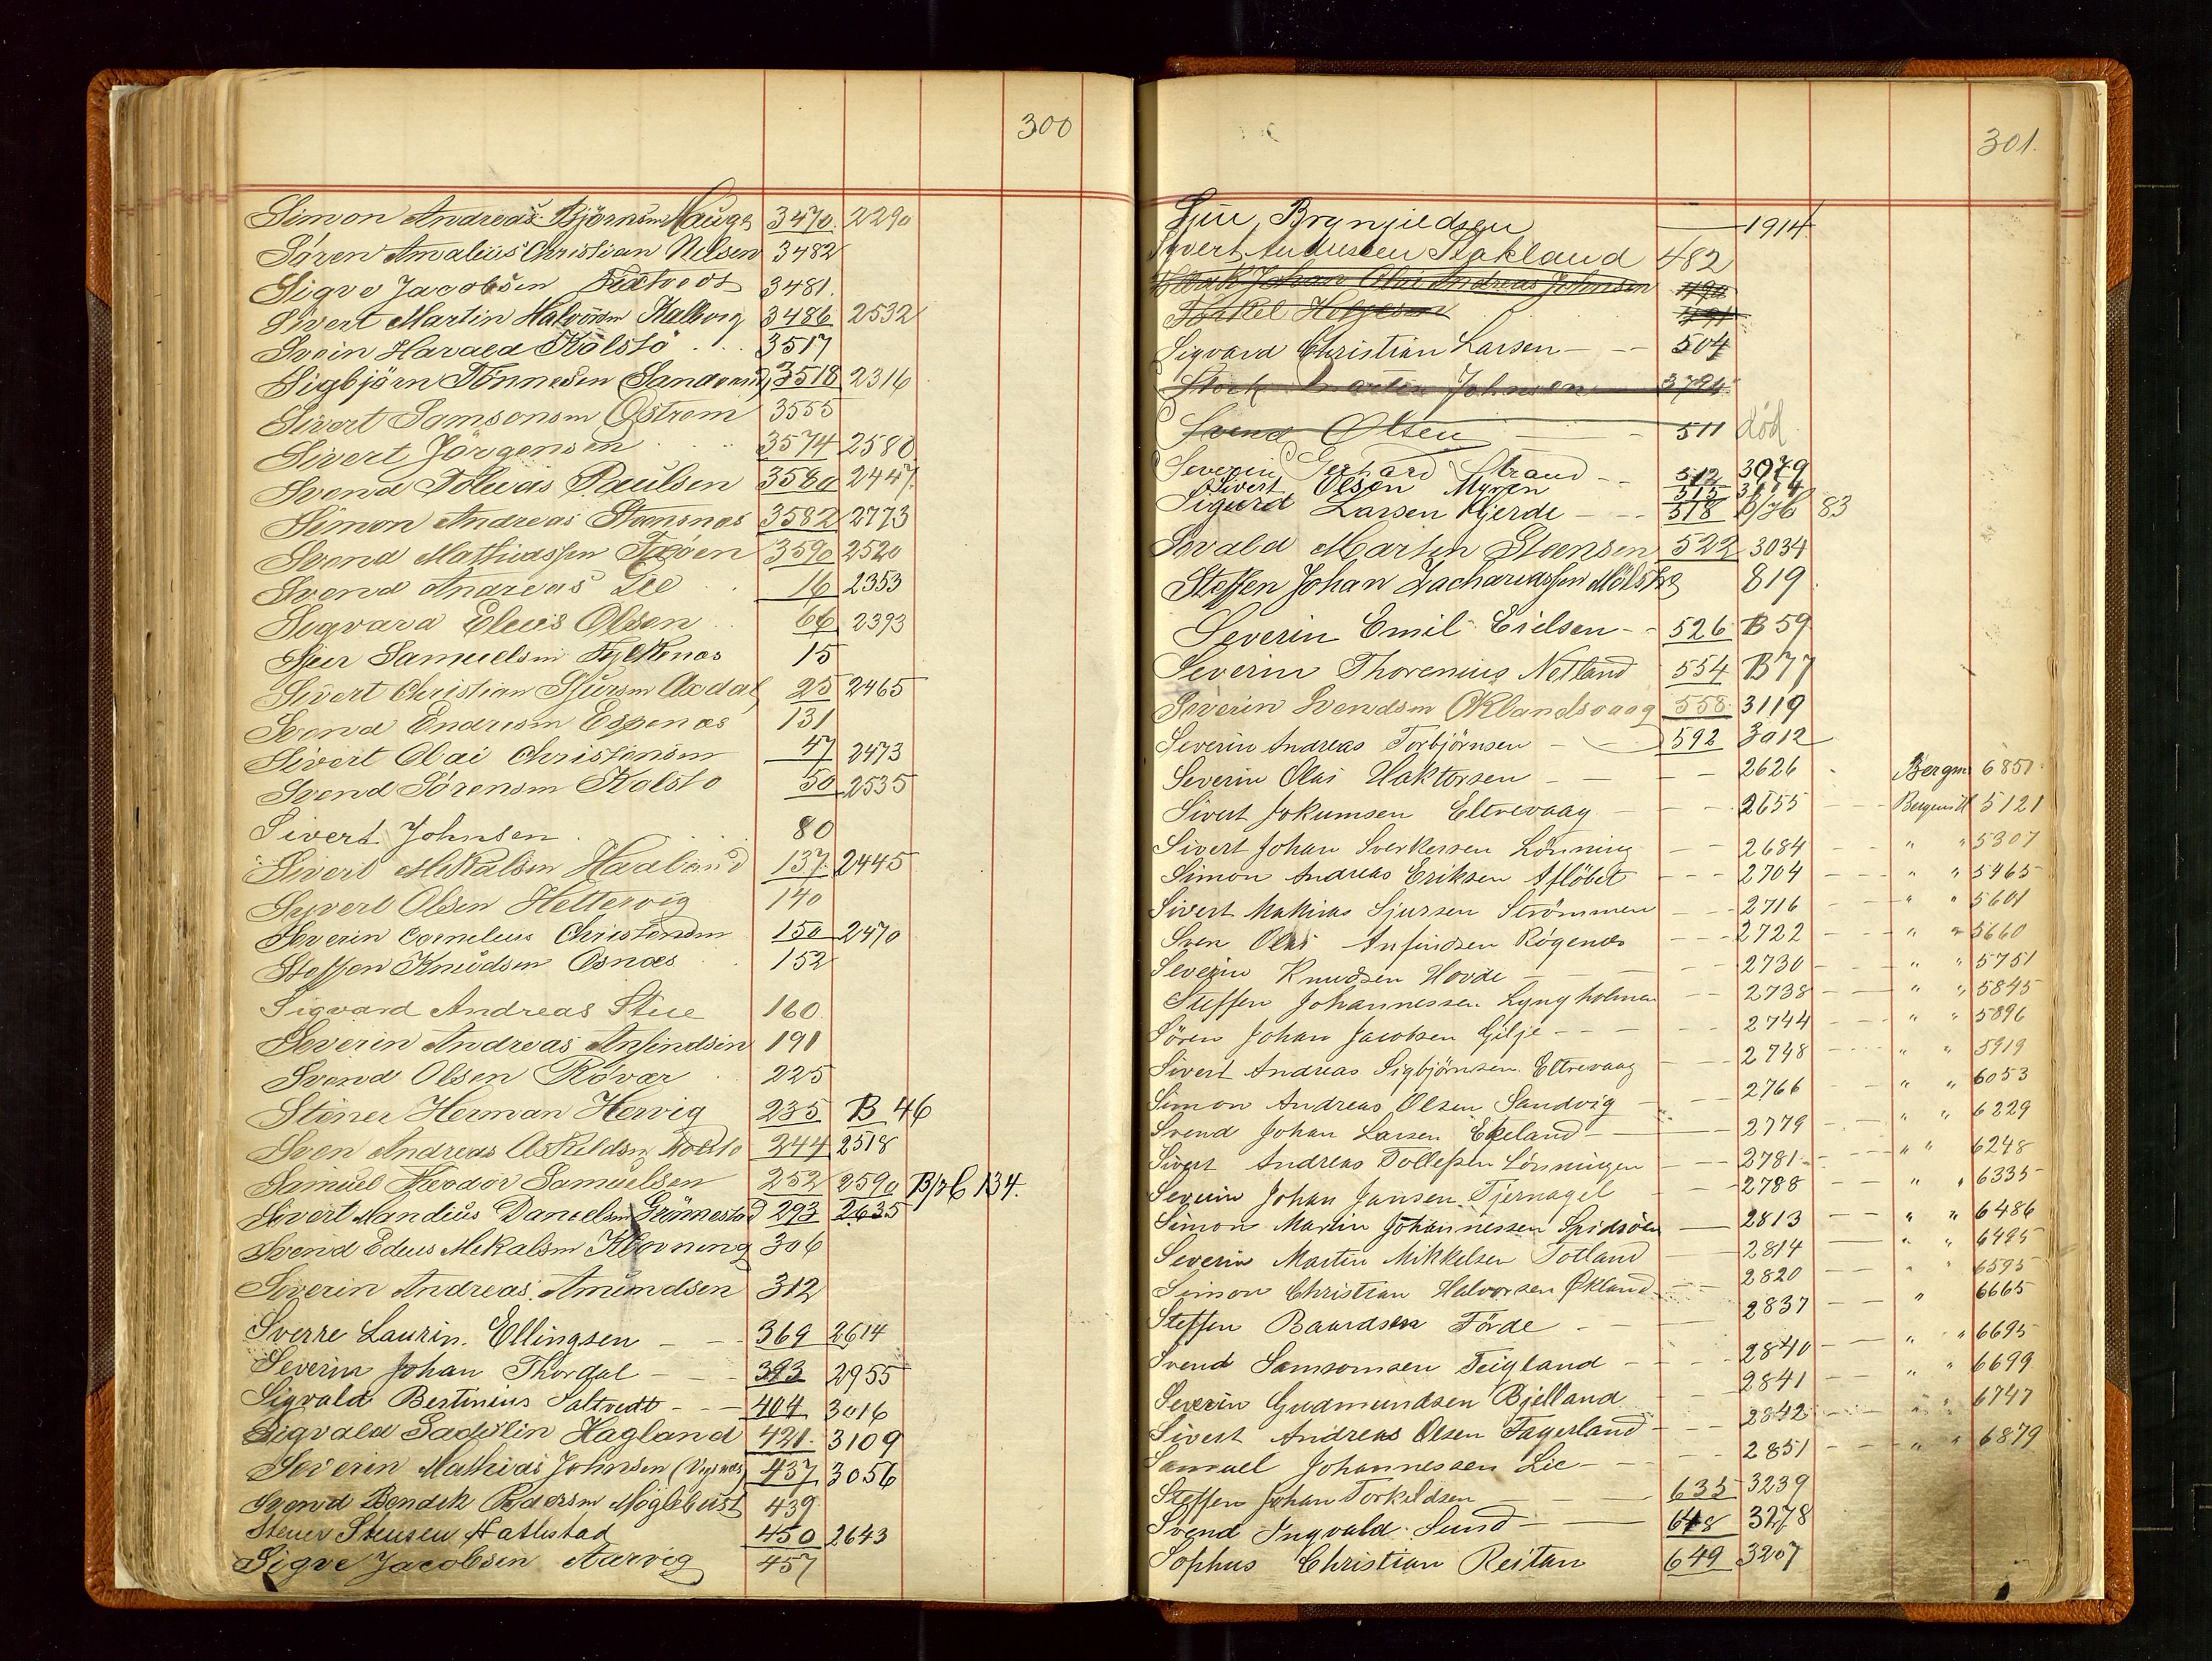 300
Simon Andreas Bjørnsen Hauge 3470 2290
Søren Amalius Christian Nilsen 3482
Sigve Jacobsen 3481
Sivert Martin Halvorsen 3486 2532
Svein Harald Kolstø 3517
Sigbjørn Tønnesen Sandvig 3518 2316
Sivert Samsonsen Østrem 3555
Sivert Jørgensen 3574 2580
Svend Tobias Paulsen 3580 2447
Simon Andreas Stonsnæs 3582 2773
Svend Mathiassen Færøen 3590 2520
Svend Andreas Lie 16 2353
Sigvard Elevis Olsen 66 2393
Sjur Samuelsen 15
Sivert Christian Sjursen Aadal 25 2465
Svend Endresen Espenæs 131
Sivert Olai Christensen 47 2473
Svend Sørensen Kolstø 50 2535
Sivert Johnsen 80
Sivert Mikalsen Haaland 137 2445
Syvert Olsen Hettervig 140
Severin Cornelius Christensen 150 2470
Steffen Knudsen Osnæs 152
Sigvard Andreas Stue 160
Severin Andreas Anfindsen 191
Svend Olsen Røvær 225
Steiner Herman Hervig 235 B 46
Sven Andreas Askildsen Kolstø 244 2518
Samuel Theodor Samuelsen 252 2590 B/76 134.
Sivert Mandius Danielsen Grønnestad 293 2635
Svend Edeus Mikalsen Klovning 306
Severin Andreas Amundsen 312
Sverre Laurin. Ellingsen — 369 2614
Severin Johan Thordal — 393 2955
Sigvald Bertinius Saltvedt - - 404 3016
Sigvald Gadelin Hagland 421 3109
Severin Mathias Johnsen (Vignæs) 437 3056
Svend Bendik Pedersen Møglebust 439
Steiner Stensen Hatlestad 450 2643
Sigve Jacobsen Aarvig 457
301.
Sjur Brynjildsen — 1914
Syvert Andersen Stakland 482
Henrik Johan Olai Andreas Johnsen 490
Torkel Helgesen 491
Sigvard Christian Larsen — 504
Martin Johnsen 3794
Svend Olsen — 511 død
Severin Gerhard Strand — 512 3079
Sivert Olsen Myren 515
Sigurd Larsen Gjerde — 518 B/76 83
Sevald Martin Steensen 522 3034
Steffen Johan Zachariassen Mølstre 819
Severin Emil Eielsen - - 526 B 59
Severin Thorenius Netland 554 B 77
Severin Svendsen Øklandsvaag 558 3119
Severin Andreas Torbjørnsen — 592 3012
Severin Olai Haktorsen — 2626 Bergens 6851
Sivert Jokumsen Eltrevaag — 2655 — 5121
Sivert Johan Sverkersen Lønning — 2684 — " " 5307
Simon Andreas Eriksen Afløbet — 2704 — " " 5465
Sivert Mathias Sjursen Strømmen — 2716 — " " 5601
Sven Olai Anfindsen Røgenæs — 2722 — " " 5660
Severin Knudsen Hovde — 2730 — " " 5751
Steffen Johannessen Lyngholmen — 2738 — " " 5845
Søren Johan Jacobsen Gilje — 2744 — " " 5896
Sivert Andreas Sigbjørnsen Eltrevaag — 2748 — " " 5919
Simon Andreas Olsen Sandvig — 2766 — " " 6053
Svend Johan Larsen Ekeland — 2779 — " " 6229
Sivert Andreas Tollefsen Lønningen — 2781 — " " 6248
Severin Johan Jansen Tjernagel — 2788 — " " 6335
Simon Martin Johannessen Spidsøen — 2813 — " " 6486
Severin Martin Mikkelsen Totland — 2814 — " " 6495
Simon Christian Halvorsen Økland — 2820 — " " 6595
Steffen Baardsen Førde — 2837 — " 6665
Svend Samsonsen Teigland — 2840 — " " 6695
Severin Gudmundsen Bjelland — 2841 — " " 6699
Sivert Andreas Olsen Fagerland — 2842 — " " 6747
Samuel Johannessen Lie — 2851 — " " 6879
Steffen Johan Torkildsen — 635 3239
Svend Ingvald Sund — 648 3278
Sophus Christian Reitan 649 3207